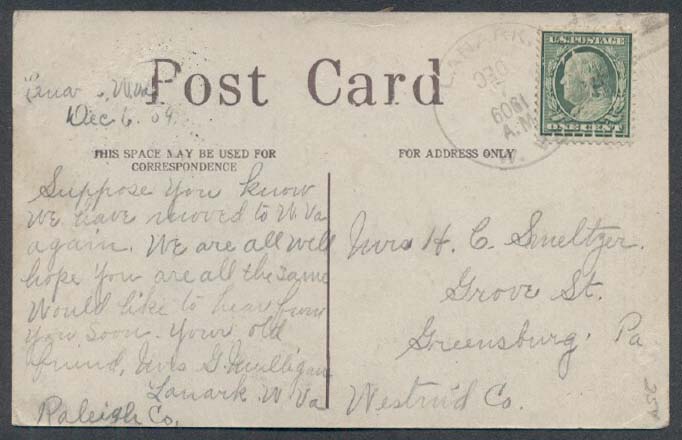 Post Card
Lanark, W. Va.
Dec 6. 09.
THIS SPACE MAY BE USED FOR
CORRESPONDENCE
Suppose you know
we have moved to W. Va
again. We are all well
hope you are all the same
Would like to hear from
you soon. Your old
friend, Mrs G. Mulligan
Lanark W. Va
Raleigh Co.
FOR ADDRESS ONLY
Mrs H. C. Smeltzer.
Grove St.
Greensburg, Pa
Westm'd Co.
LANARK,
DEC
1909
A.M.
W.
U.S. POSTAGE
ONE CENT
254